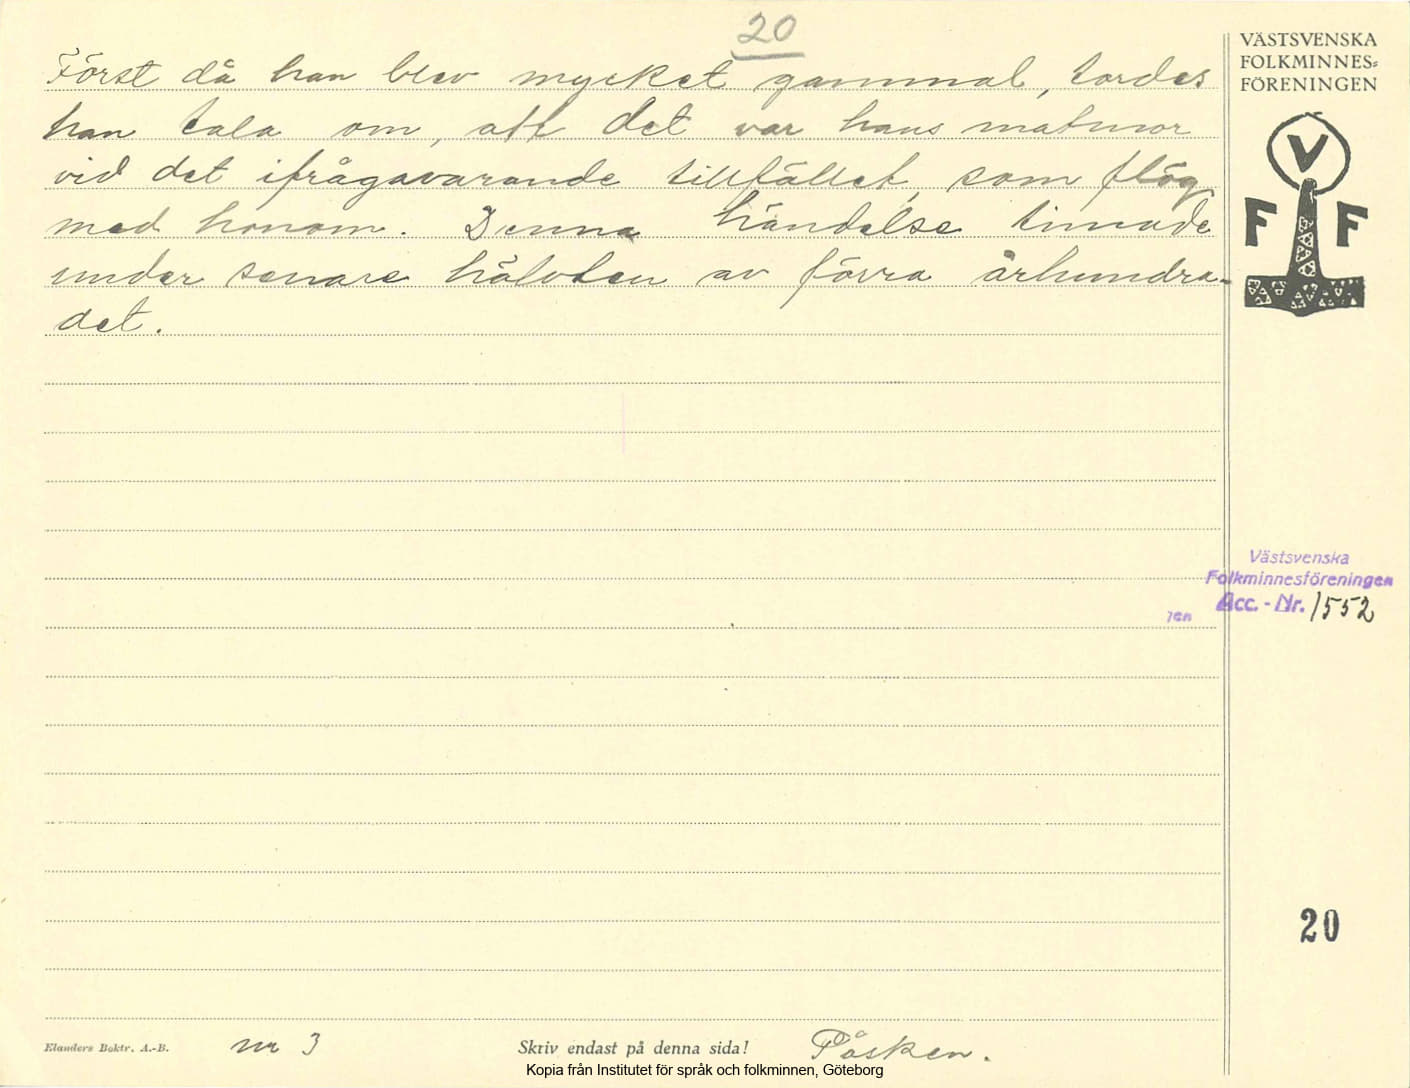 20
Först då han blev mycket gammal, tordes
han tala om, att det var hans matmor
vid det ifrågavarande tillfället, som flög
med honom. Denna händelse timade
under senare hälvten av förra århundra-
det.
VÄSTSVENSKA
FOLKMINNES-
FÖRENINGEN
V
F F
Västsvenska
Folkminnesföreningen
Acc.-Nr. 1552
en
20
Elanders Boktr. A.-B.
nr 3
Skriv endast på denna sida!
Påsken.
Kopia från Institutet för språk och folkminnen, Göteborg